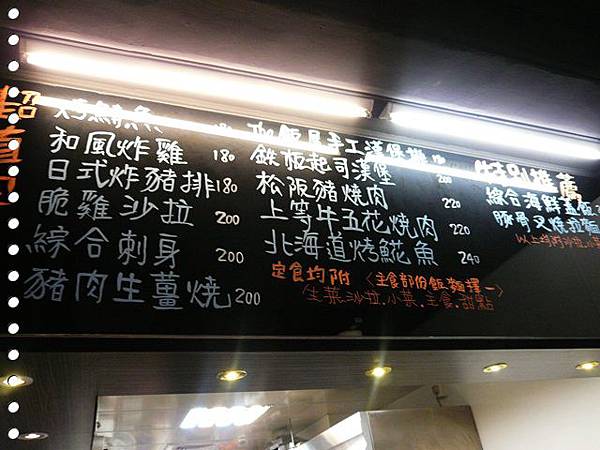 超值
烤鯖魚
和風炸雞 180
日式炸豬排 180
脆雞沙拉 200
綜合刺身 200
豬肉生薑燒 200
手工漢堡排
鉄板起司漢堡 200
松阪豬燒肉 220
上等牛五花燒肉 220
北海道烤鯤魚 240
定食均附〈主食部份飯麵擇一〉
生菜沙拉.小菜.主食.甜點
特別推薦
綜合海鮮蓋飯
豚骨叉燒拉麵
以上均附沙拉.小菜